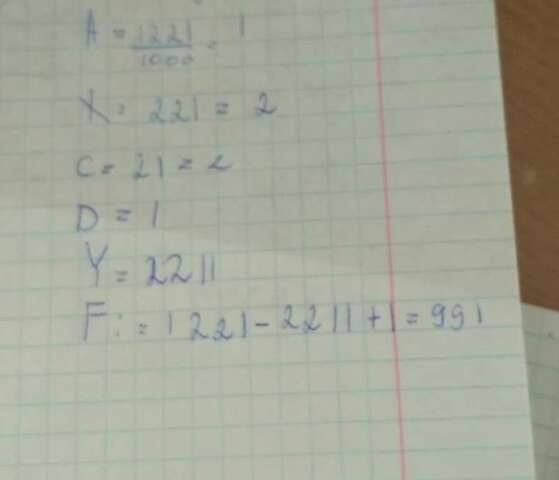 A = 1221/1000 = 1
X = 221 = 2
C = 21 = 2
D = 1
Y = 2211
F := 1221 - 2211 + 1 = 991